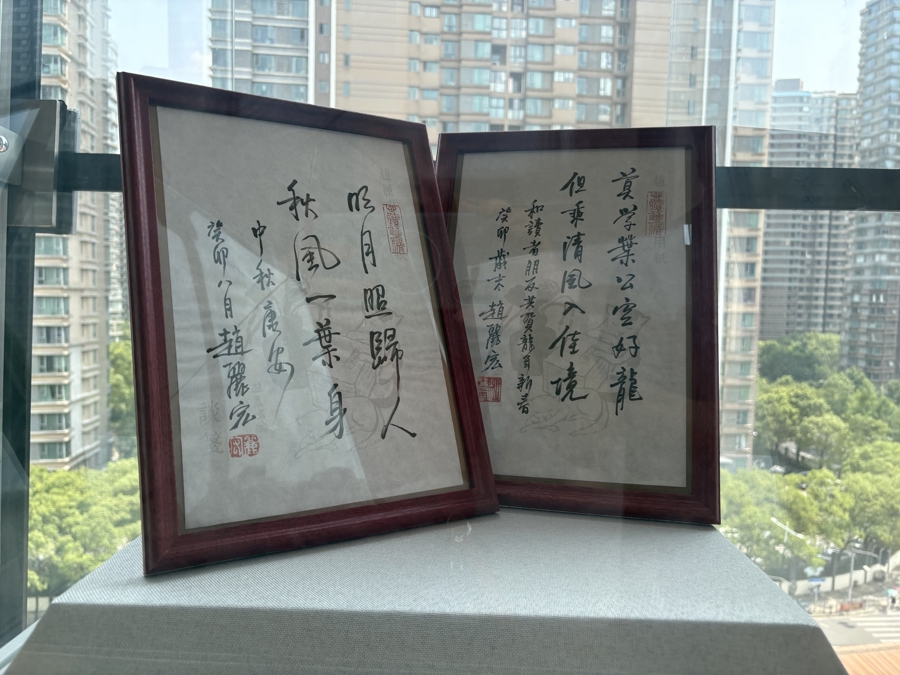 明月照歸人
秋風一葉身
中秋康安
癸卯八月趙麗宏
莫学葉公空好龍
但乘清風入佳境
和讀者朋友共賀龍年新春
癸卯歲末趙麗宏